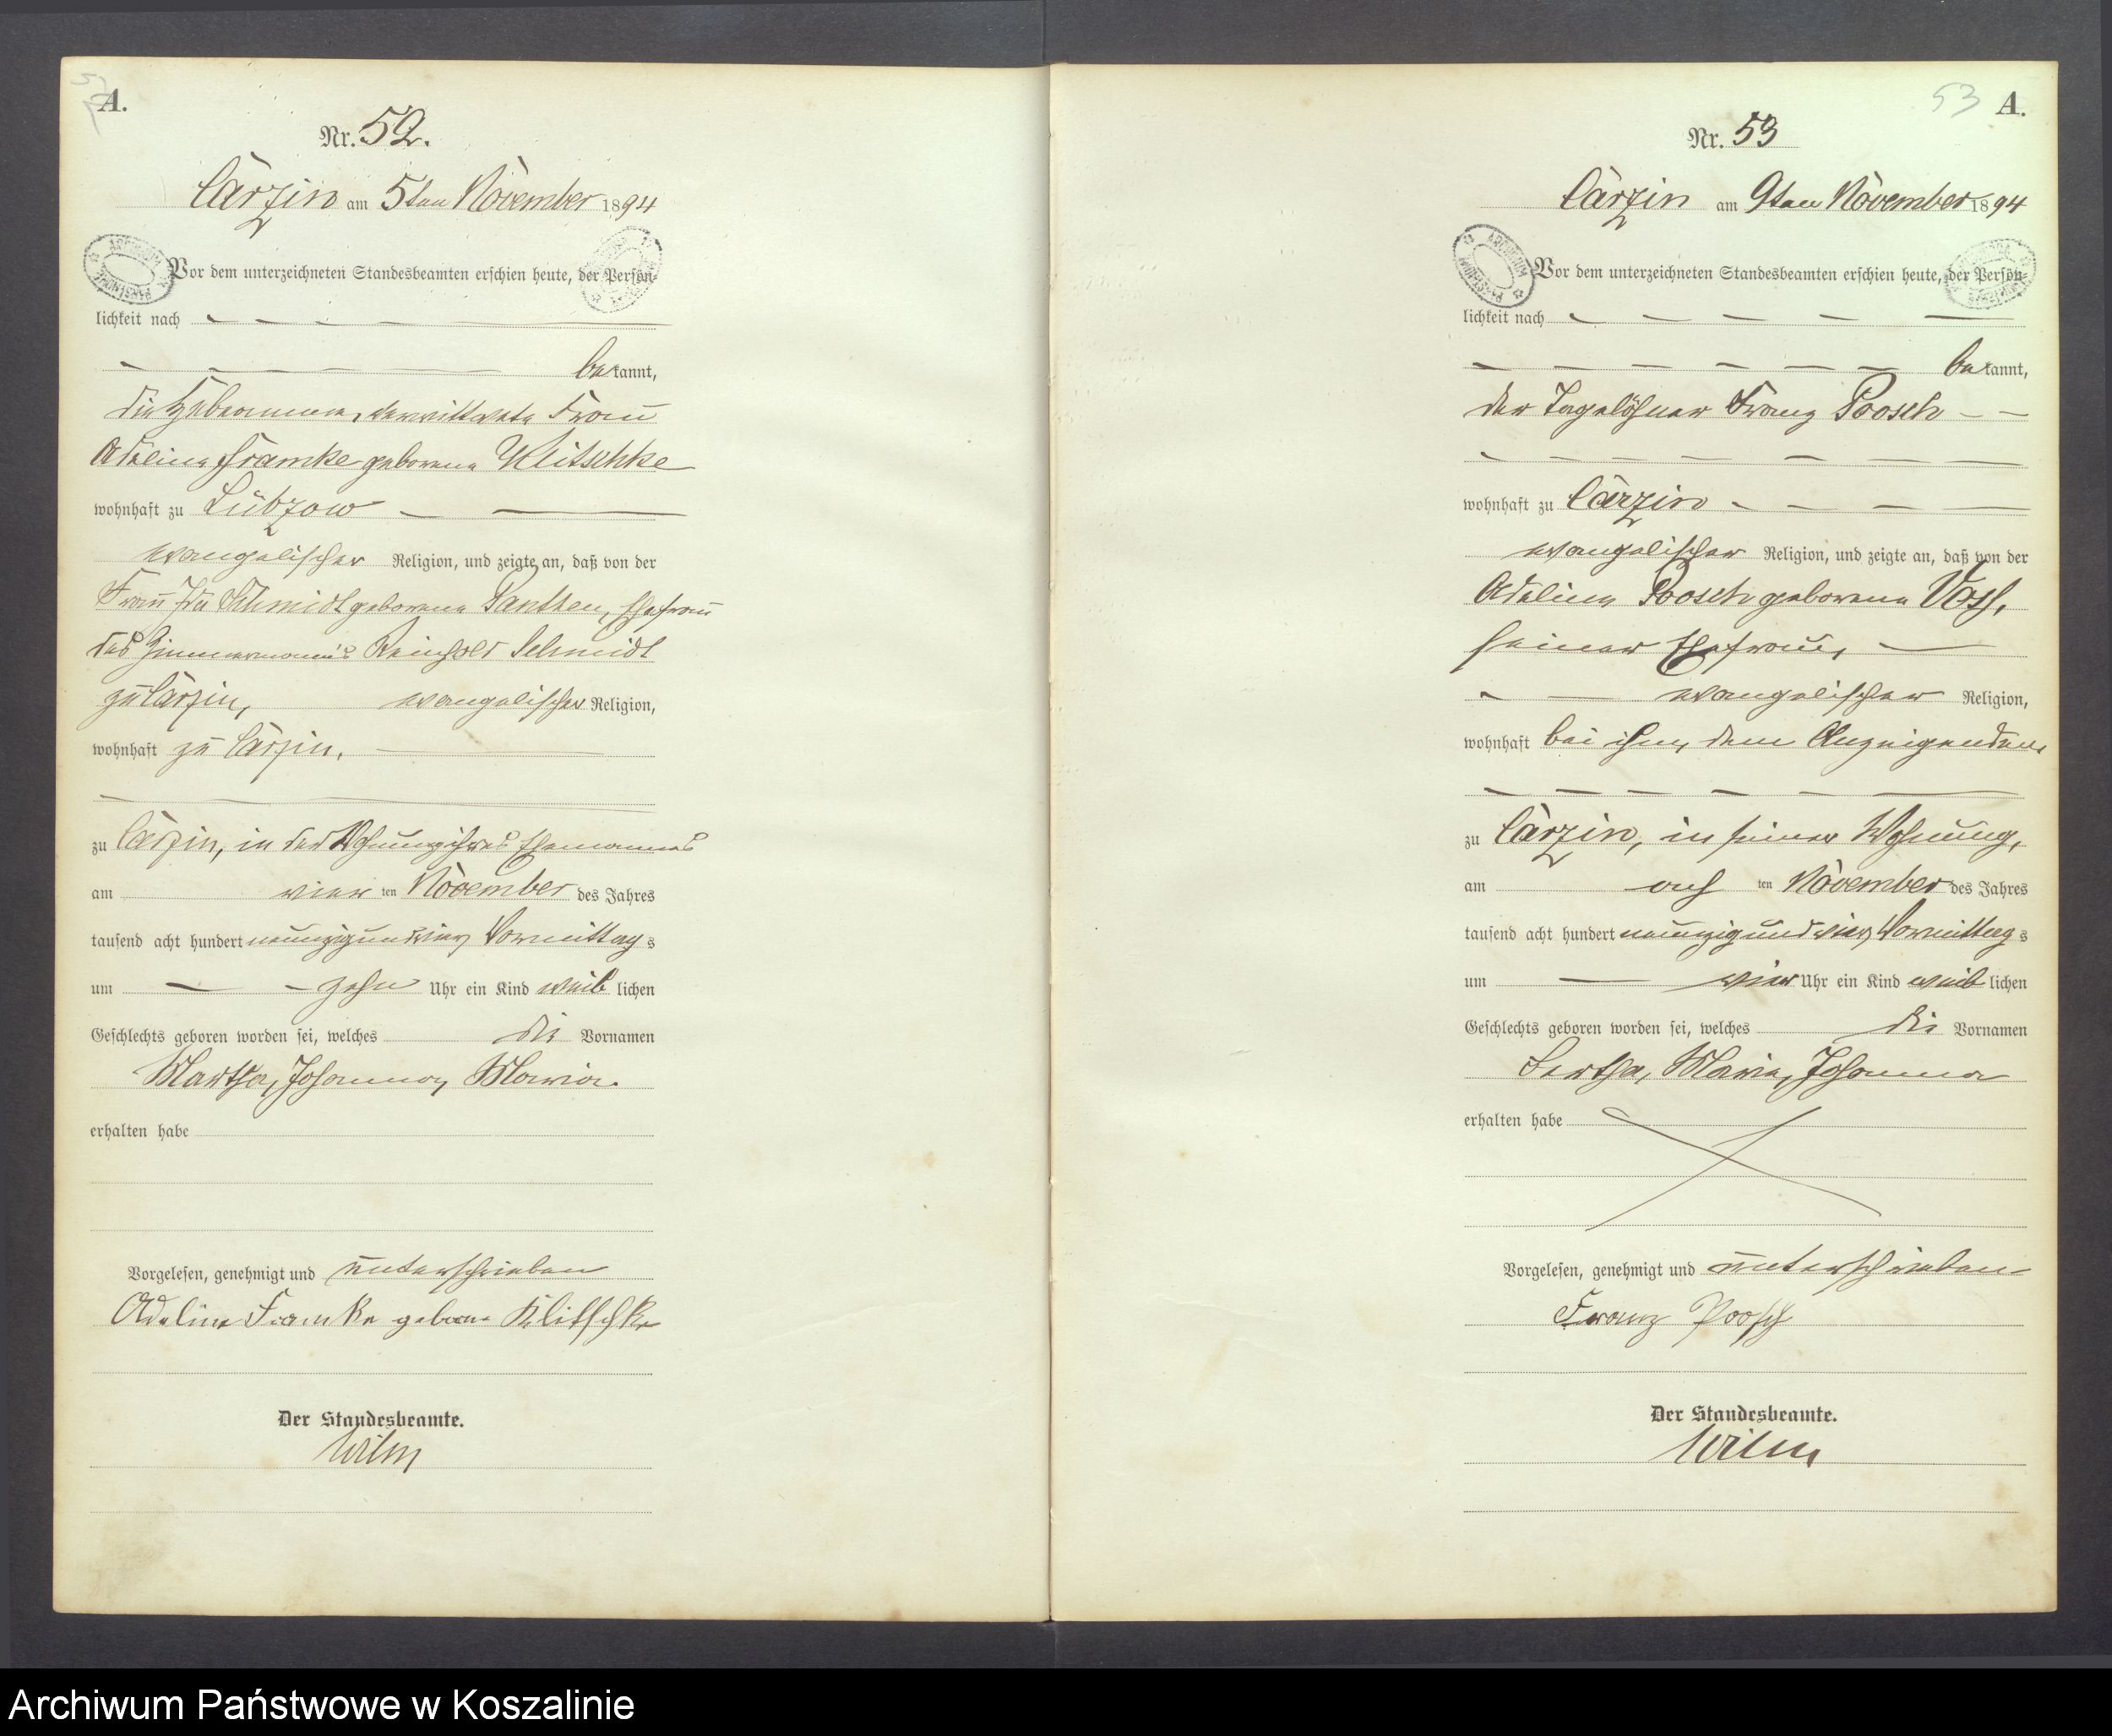 A.
Nr. 52.
Carzin am 5ten November 1894
Vor dem unterzeichneten Standesbeamten erschien heute, der Persön-
lichkeit nach
bekannt,
die Hebamme, verwittwete Frau
Adeline Framke geborene Klitschke
wohnhaft zu Lübzow
evangelischer Religion, und zeigte an, daß von der
Frau Ida Schmidt geborene Panthen, Ehefrau
des Zimmermann's Reinhold Schmidt
zu Carzin, evangelischer Religion,
wohnhaft zu Carzin,
zu Carzin, in der Wohnung ihres Ehemannes
am vier ten November des Jahres
tausend acht hundert neunzig und vier, Vormittag s
um zehn Uhr ein Kind weib lichen
Geschlechts geboren worden sei, welches die Vornamen
Martha, Johanna, Maria.
erhalten habe
Vorgelesen, genehmigt und unterschrieben
Adeline Framke geborne Klitschke
Der Standesbeamte.
Wilm
53
A.
Nr. 53
Carzin am 9ten November 1894
Vor dem unterzeichneten Standesbeamten erschien heute, der Persön-
lichkeit nach
bekannt,
der Tagelöhner Franz Poosch
wohnhaft zu Carzin
evangelischer Religion, und zeigte an, daß von der
Adeline Poosch geborene Voß,
seiner Ehefrau,
evangelischer Religion,
wohnhaft bei ihm, dem Anzeigenden,
zu Carzin, in seiner Wohnung,
am ach ten November des Jahres
tausend acht hundert neunzig und vier, Vormittag s
um vier Uhr ein Kind weib lichen
Geschlechts geboren worden sei, welches die Vornamen
Bertha, Marie, Johanna
erhalten habe
Vorgelesen, genehmigt und unterschrieben
Franz Poosch
Der Standesbeamte.
Wilm
Archiwum Państwowe w Koszalinie